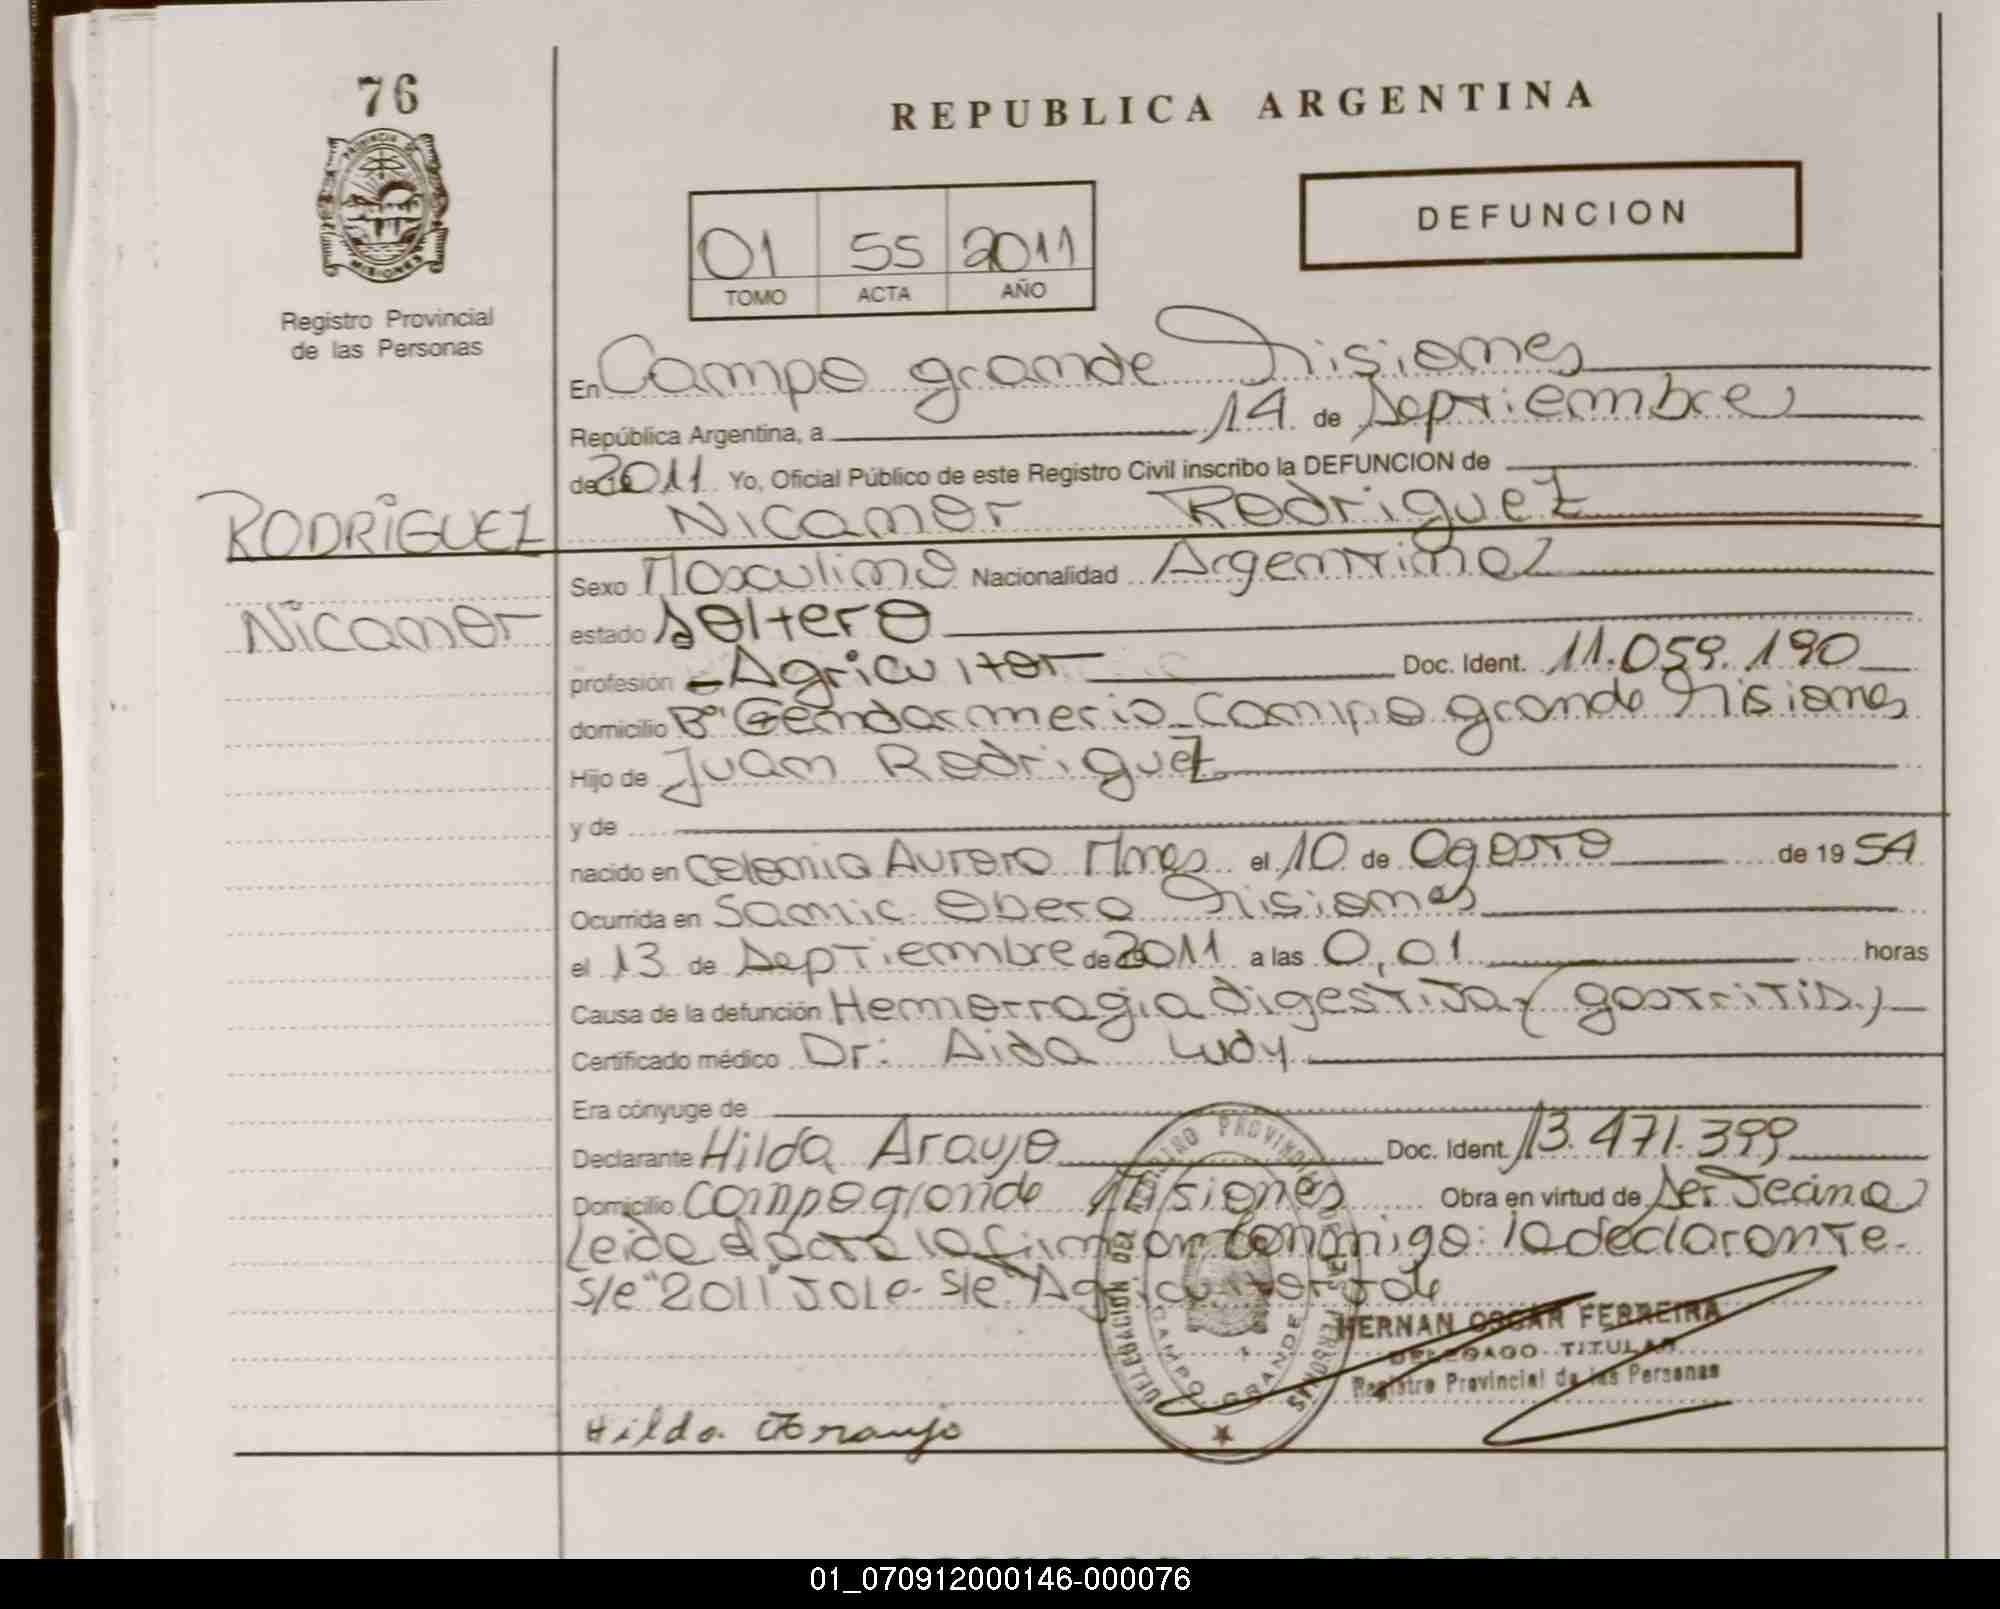 76
PROVINCIA DE
MISIONES
Registro Provincial
de las Personas
REPUBLICA ARGENTINA
01 55 2011
TOMO ACTA AÑO
DEFUNCION
En Campo grande Misiones
República Argentina, a 14 de Septiembre
de 2011 Yo, Oficial Público de este Registro Civil inscribo la DEFUNCION de
RODRIGUEZ
Nicanor
Nicanor Rodriguez
Sexo Masculino Nacionalidad Argentina
estado Soltero
profesión Agricultor Doc. Ident. 11.059.190
domicilio Bº Gendarmeria - Campo grande Misiones
Hijo de Juan Rodriguez
y de
nacido en Colonia Aurora Mnes el 10 de Agosto de 1954
Ocurrida en Samic Obera Misiones
el 13 de Septiembre de 2011 a las 0,01 horas
Causa de la defunción Hemorragia digestiva (gastritis)
Certificado médico Dr: Aida Ludy
Era cónyuge de
Declarante Hilda Araujo Doc. Ident. 13.471.399
Domicilio Campo grande Misiones Obra en virtud de Ser Vecina
Leida el acta la firman conmigo: la declarante.
s/e "2011" vale - s/e "Agricultor" vale
DELEGACION DEL REGISTRO PROVINCIAL DE LAS PERSONAS
CAMPO GRANDE
HERNAN OSCAR FERREIRA
DELEGADO TITULAR
Registro Provincial de las Personas
Hilda Araujo
01_070912000146-000076